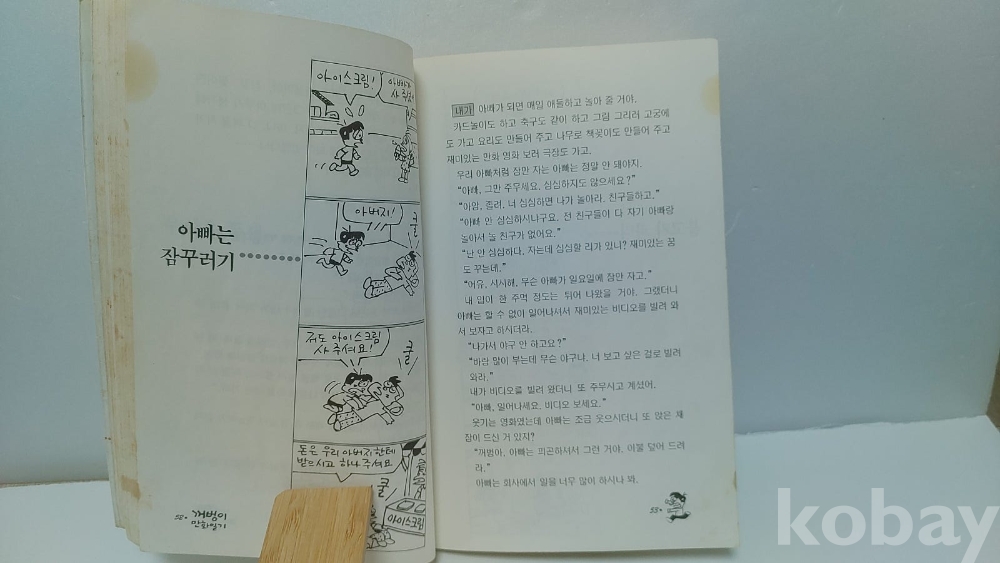 아빠는
잠꾸러기
아이스크림!
아빠가
사 주셨
아버지!
쿨
저도 아이스크림
사 주셔요!
쿨
돈은 우리 아버지한테
받으시고 하나 주셔요
쿨
아이스크림
꺼벙이
만화일기
내가 아빠가 되면 매일 애들하고 놀아 줄 거야.
카드놀이도 하고 축구도 같이 하고 그림 그리러 고궁에
도 가고 요리도 만들어 주고 나무로 책꽂이도 만들어 주고
재미있는 만화 영화 보러 극장도 가고.
우리 아빠처럼 잠만 자는 아빠는 정말 안 돼야지.
“아빠, 그만 주무세요. 심심하지도 않으세요?”
“아암, 졸려. 너 심심하면 나가 놀아라. 친구들하고.”
“아빠 안 심심하시냐구요. 전 친구들이 다 자기 아빠랑
놀아서 놀 친구가 없어요.”
“난 안 심심하다. 자는데 심심할 리가 있니? 재미있는 꿈
도 꾸는데.”
“어유, 시시해. 무슨 아빠가 일요일에 잠만 자고.”
내 입이 한 주먹 정도는 튀어 나왔을 거야. 그랬더니
아빠는 할 수 없이 일어나셔서 재미있는 비디오를 빌려 와
서 보자고 하시더라.
“나가서 야구 안 하고요?”
“바람 많이 부는데 무슨 야구냐. 너 보고 싶은 걸로 빌려
와라.”
내가 비디오를 빌려 왔더니 또 주무시고 계셨어.
“아빠, 일어나세요. 비디오 보세요.”
웃기는 영화였는데 아빠는 조금 웃으시더니 또 앉은 채
잠이 드신 거 있지?
“꺼벙아, 아빠는 피곤하셔서 그런 거야. 이불 덮어 드려
라.”
아빠는 회사에서 일을 너무 많이 하시나 봐.
kobay